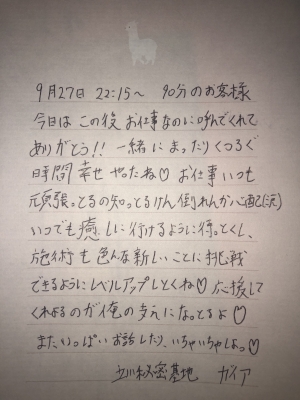 9月27日 22:15〜 90分のお客様
今日はこの後お仕事なのに呼んでくれて
ありがとう!! 一緒にまったりくつろぐ
時間幸せやったね♡ お仕事いつも
頑張ってるの知ってるけん倒れんか心配(汗)
いつでも癒しに行けるように待っとくし、
施術も色んな新しいことに挑戦
できるようにレベルアップしとくね♡ 応援して
くれよるのが俺の支えになってるよ♡
また、いっぱいお話したり、いちゃいちゃしよっ♡
立川秘密基地 ガイア